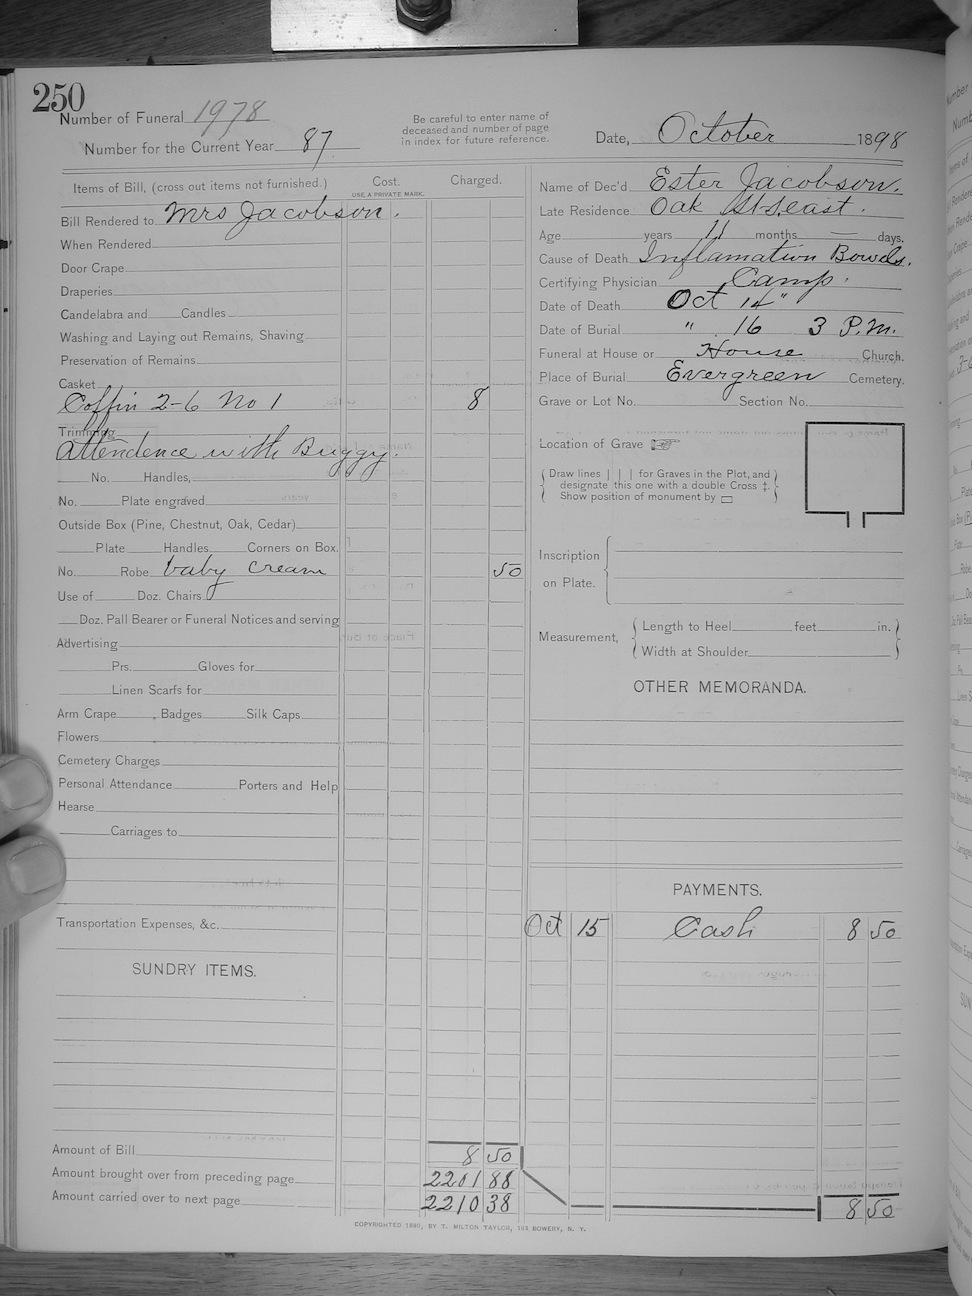 250
Number of Funeral 1978
Number for the Current Year 87
Be careful to enter name of
deceased and number of page
in index for future reference.
Date, October 1898
Items of Bill, (cross out items not furnished.)
Cost.
USE A PRIVATE MARK.
Charged.
Bill Rendered to Mrs Jacobson.
When Rendered
Door Crape
Draperies
Candelabra and Candles
Washing and Laying out Remains, Shaving
Preservation of Remains
Casket
Coffin 2-6 No 1 8
Trimming
Attendence with Buggy.
No. Handles,
No. Plate engraved
Outside Box (Pine, Chestnut, Oak, Cedar)
Plate Handles Corners on Box.
No. Robe baby cream 50
Use of Doz. Chairs
Doz. Pall Bearer or Funeral Notices and serving
Advertising
Prs. Gloves for
Linen Scarfs for
Arm Crape Badges Silk Caps
Flowers
Cemetery Charges
Personal Attendance Porters and Help
Hearse
Carriages to
Transportation Expenses, &c.
SUNDRY ITEMS.
Amount of Bill 8 50
Amount brought over from preceding page 2201 88
Amount carried over to next page 2210 38
Name of Dec'd Ester Jacobson.
Late Residence Oak St S.east.
Age years 11 months — days.
Cause of Death Inflamation Bowels.
Certifying Physician Camp.
Date of Death Oct 14"
Date of Burial " 16 3 P.M.
Funeral at House or House Church.
Place of Burial Evergreen Cemetery.
Grave or Lot No. Section No.
Location of Grave
Draw lines | | | for Graves in the Plot, and
designate this one with a double Cross ‡.
Show position of monument by ▭
Inscription
on Plate.
Measurement,
Length to Heel feet in.
Width at Shoulder
OTHER MEMORANDA.
PAYMENTS.
Oct 15 Cash 8 50
8 50
COPYRIGHTED 1890, BY T. MILTON TAYLOR, BOWERY, N. Y.